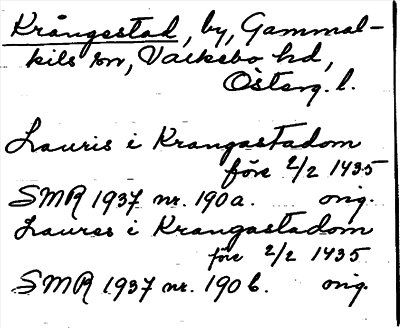 Krångestad, by, Gammal-
kils sn, Valkebo hd,
Österg. l.
Lauris i Krangastadom
före 2/2 1435
SMR 1937 nr. 190a. orig.
Laures i Krangastadom
före 2/2 1435
SMR 1937 nr. 190 b. orig.